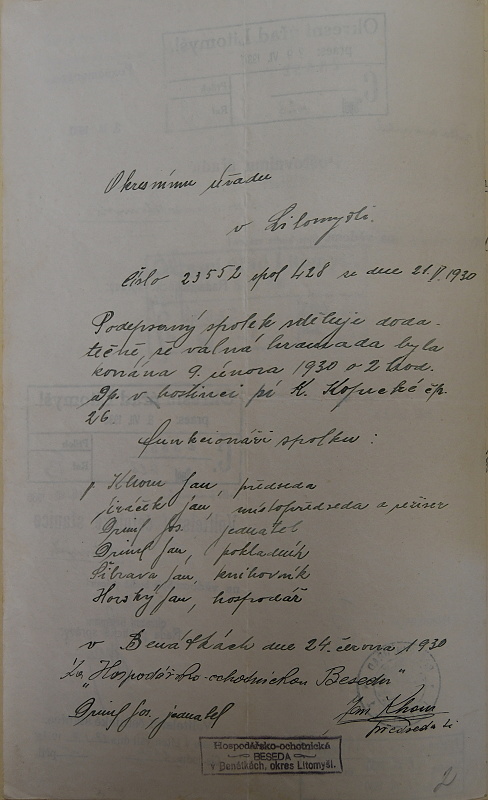 Okresnímu úřadu
v Litomyšli.
Číslo 23552 spol 428 ze dne 21.V.1930
Podepsaný spolek sděluje doda-
tečně, že valná hromada byla
konána 9. února 1930 o 2 hod.
odp. v hostinci pí K. Kopecké čp.
26.
funkcionáři spolku:
p. Khom Jan, předseda
Jiráček Jan, místopředseda a režiser
Jos. jednatel
Jan, pokladník
Šibrava Jan, knihovník
Horský Jan, hospodář
v Benátkách dne 24. června 1930
Za „Hospodářsko-ochotnickou Besedu"
Jos. jednatel
Jan Khom
předseda
Hospodářsko-ochotnická
BESEDA
v Benátkách, okres Litomyšl.
Okresní úřad Litomyšl
2